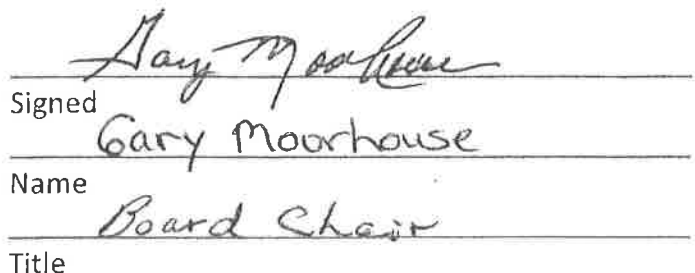 Gary Moorhouse
Signed
Gary Moorhouse
Name
Board Chair
Title